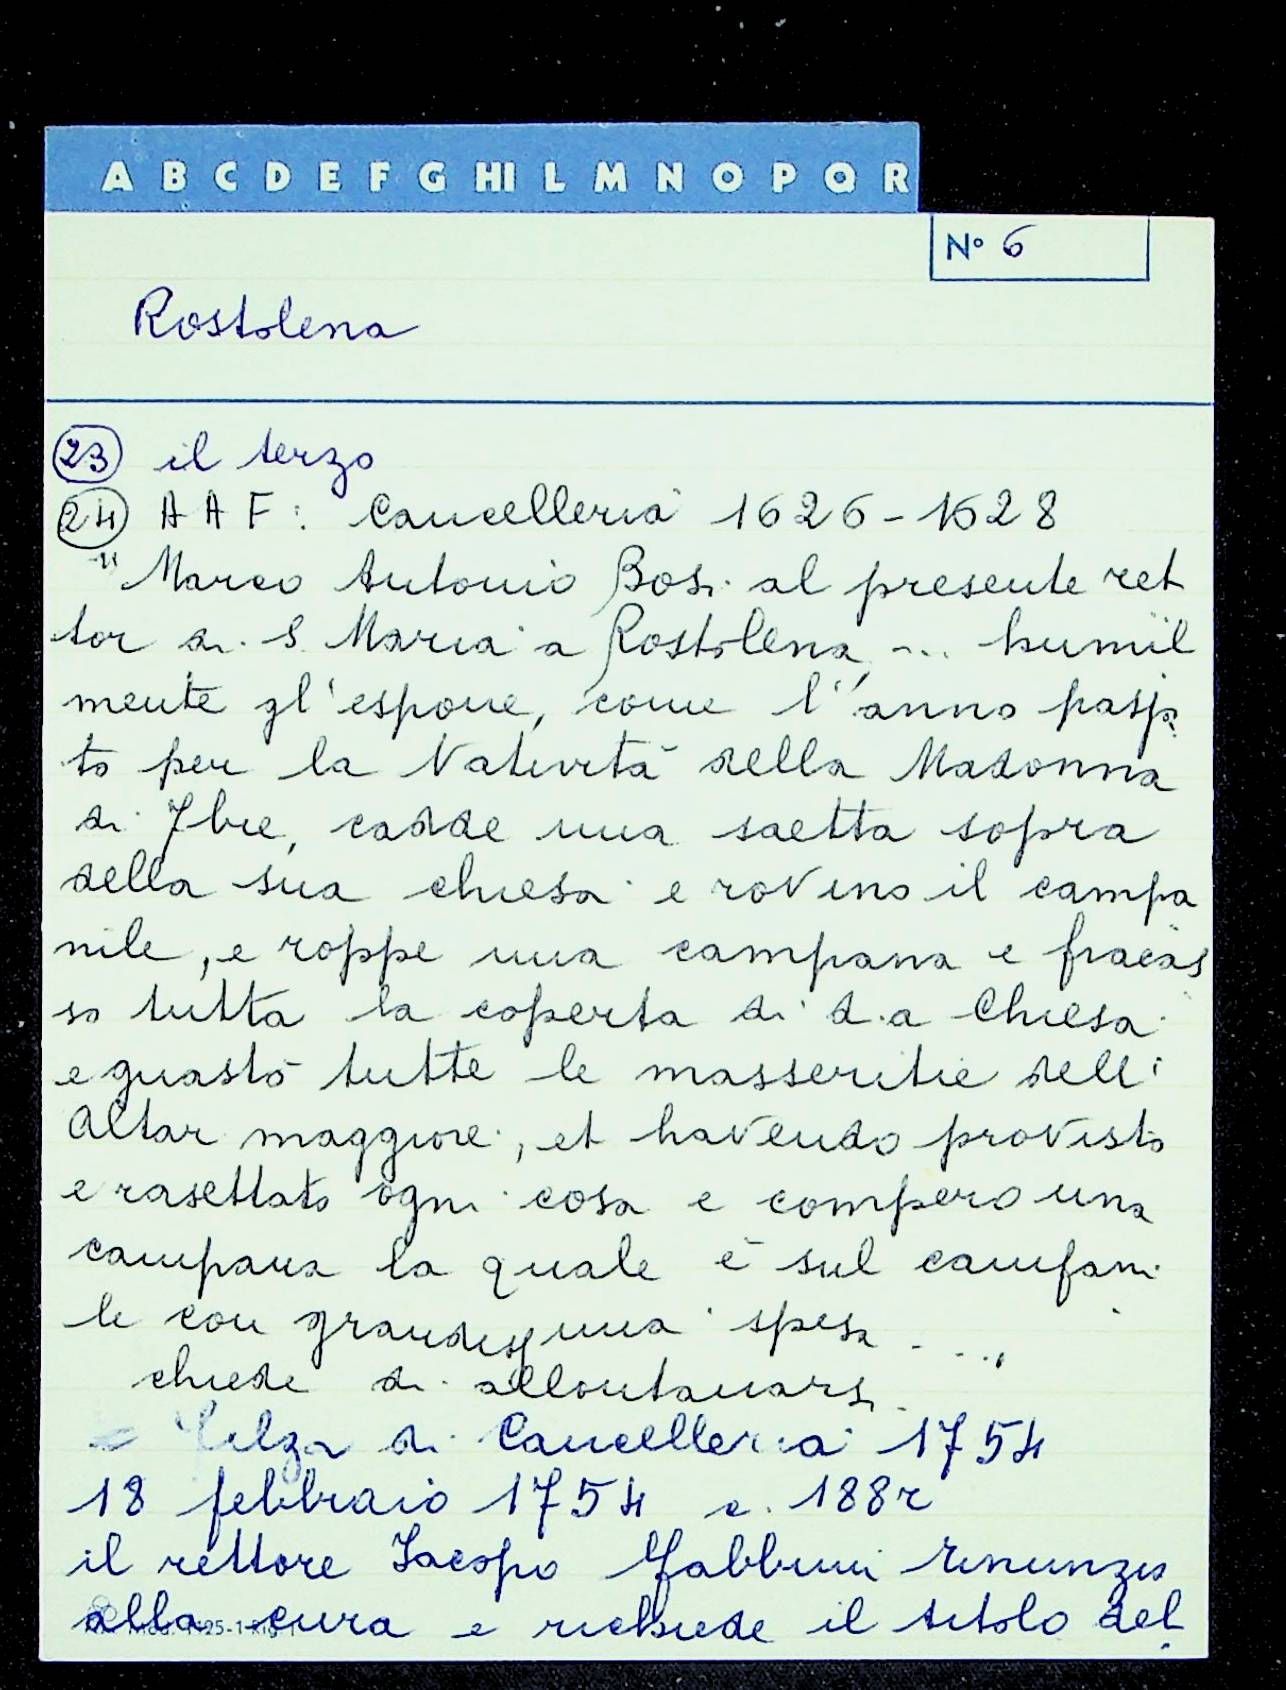 A B C D E F G HI L M N O P Q R
N° 6
Rostolena
23 il terzo
24 A A F: Cancelleria 1626-1628
"Marco Antonio Bosi al presente ret
tor di S. Maria a Rostolena ... humil
mente gl'espone, come l'anno passa
to per la Natività della Madonna
di 7bre, cadde una saetta sopra
della sua chiesa e rovino il campa
nile, e roppe una campana e fracas
so tutta la coperta di d.a Chiesa
e guastò tutte le masseritie dell'
Altar maggiore, et havendo provisto
e rasettato ogni cosa e compero una
campana la quale è sul campani
le con grandissima spesa ....,
chiede di allontanarsi
Filza di Cancelleria 1754
18 febbraio 1754 c. 188r
il rettore Jacopo Gabbrini rinunzia
alla cura e richiede il titolo del